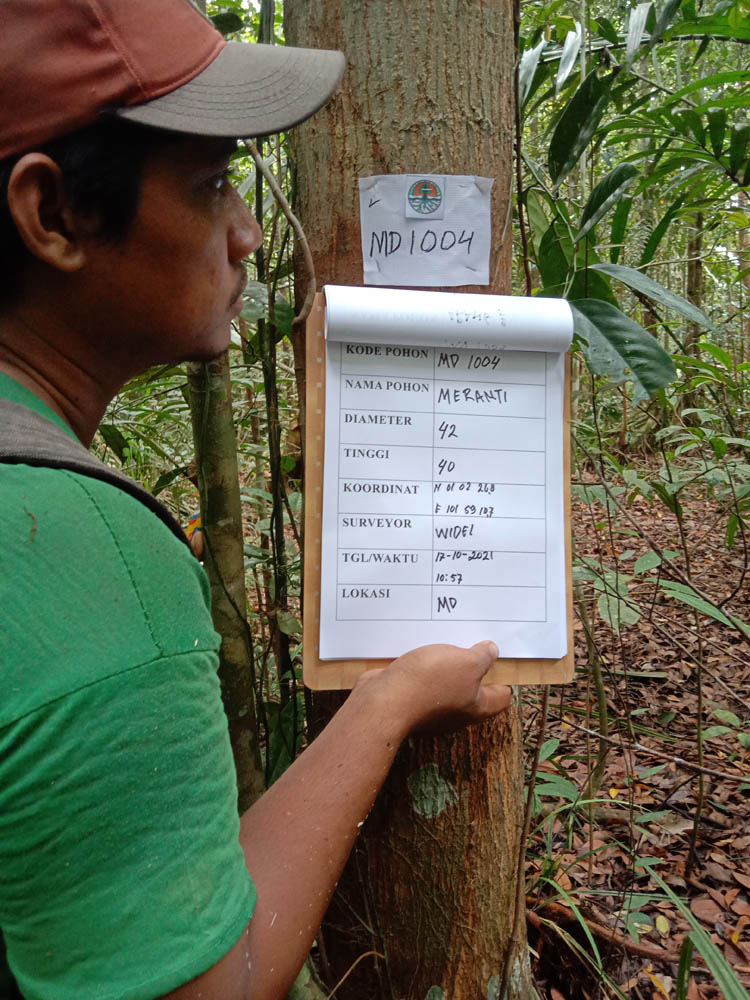 MD 1004
KODE POHON MD 1004
NAMA POHON MERANTI
DIAMETER 42
TINGGI 40
KOORDINAT N 01 02 26,8
E 101 59 10,7
SURVEYOR WIDEL
TGL/WAKTU 17-10-2021
10:57
LOKASI MD